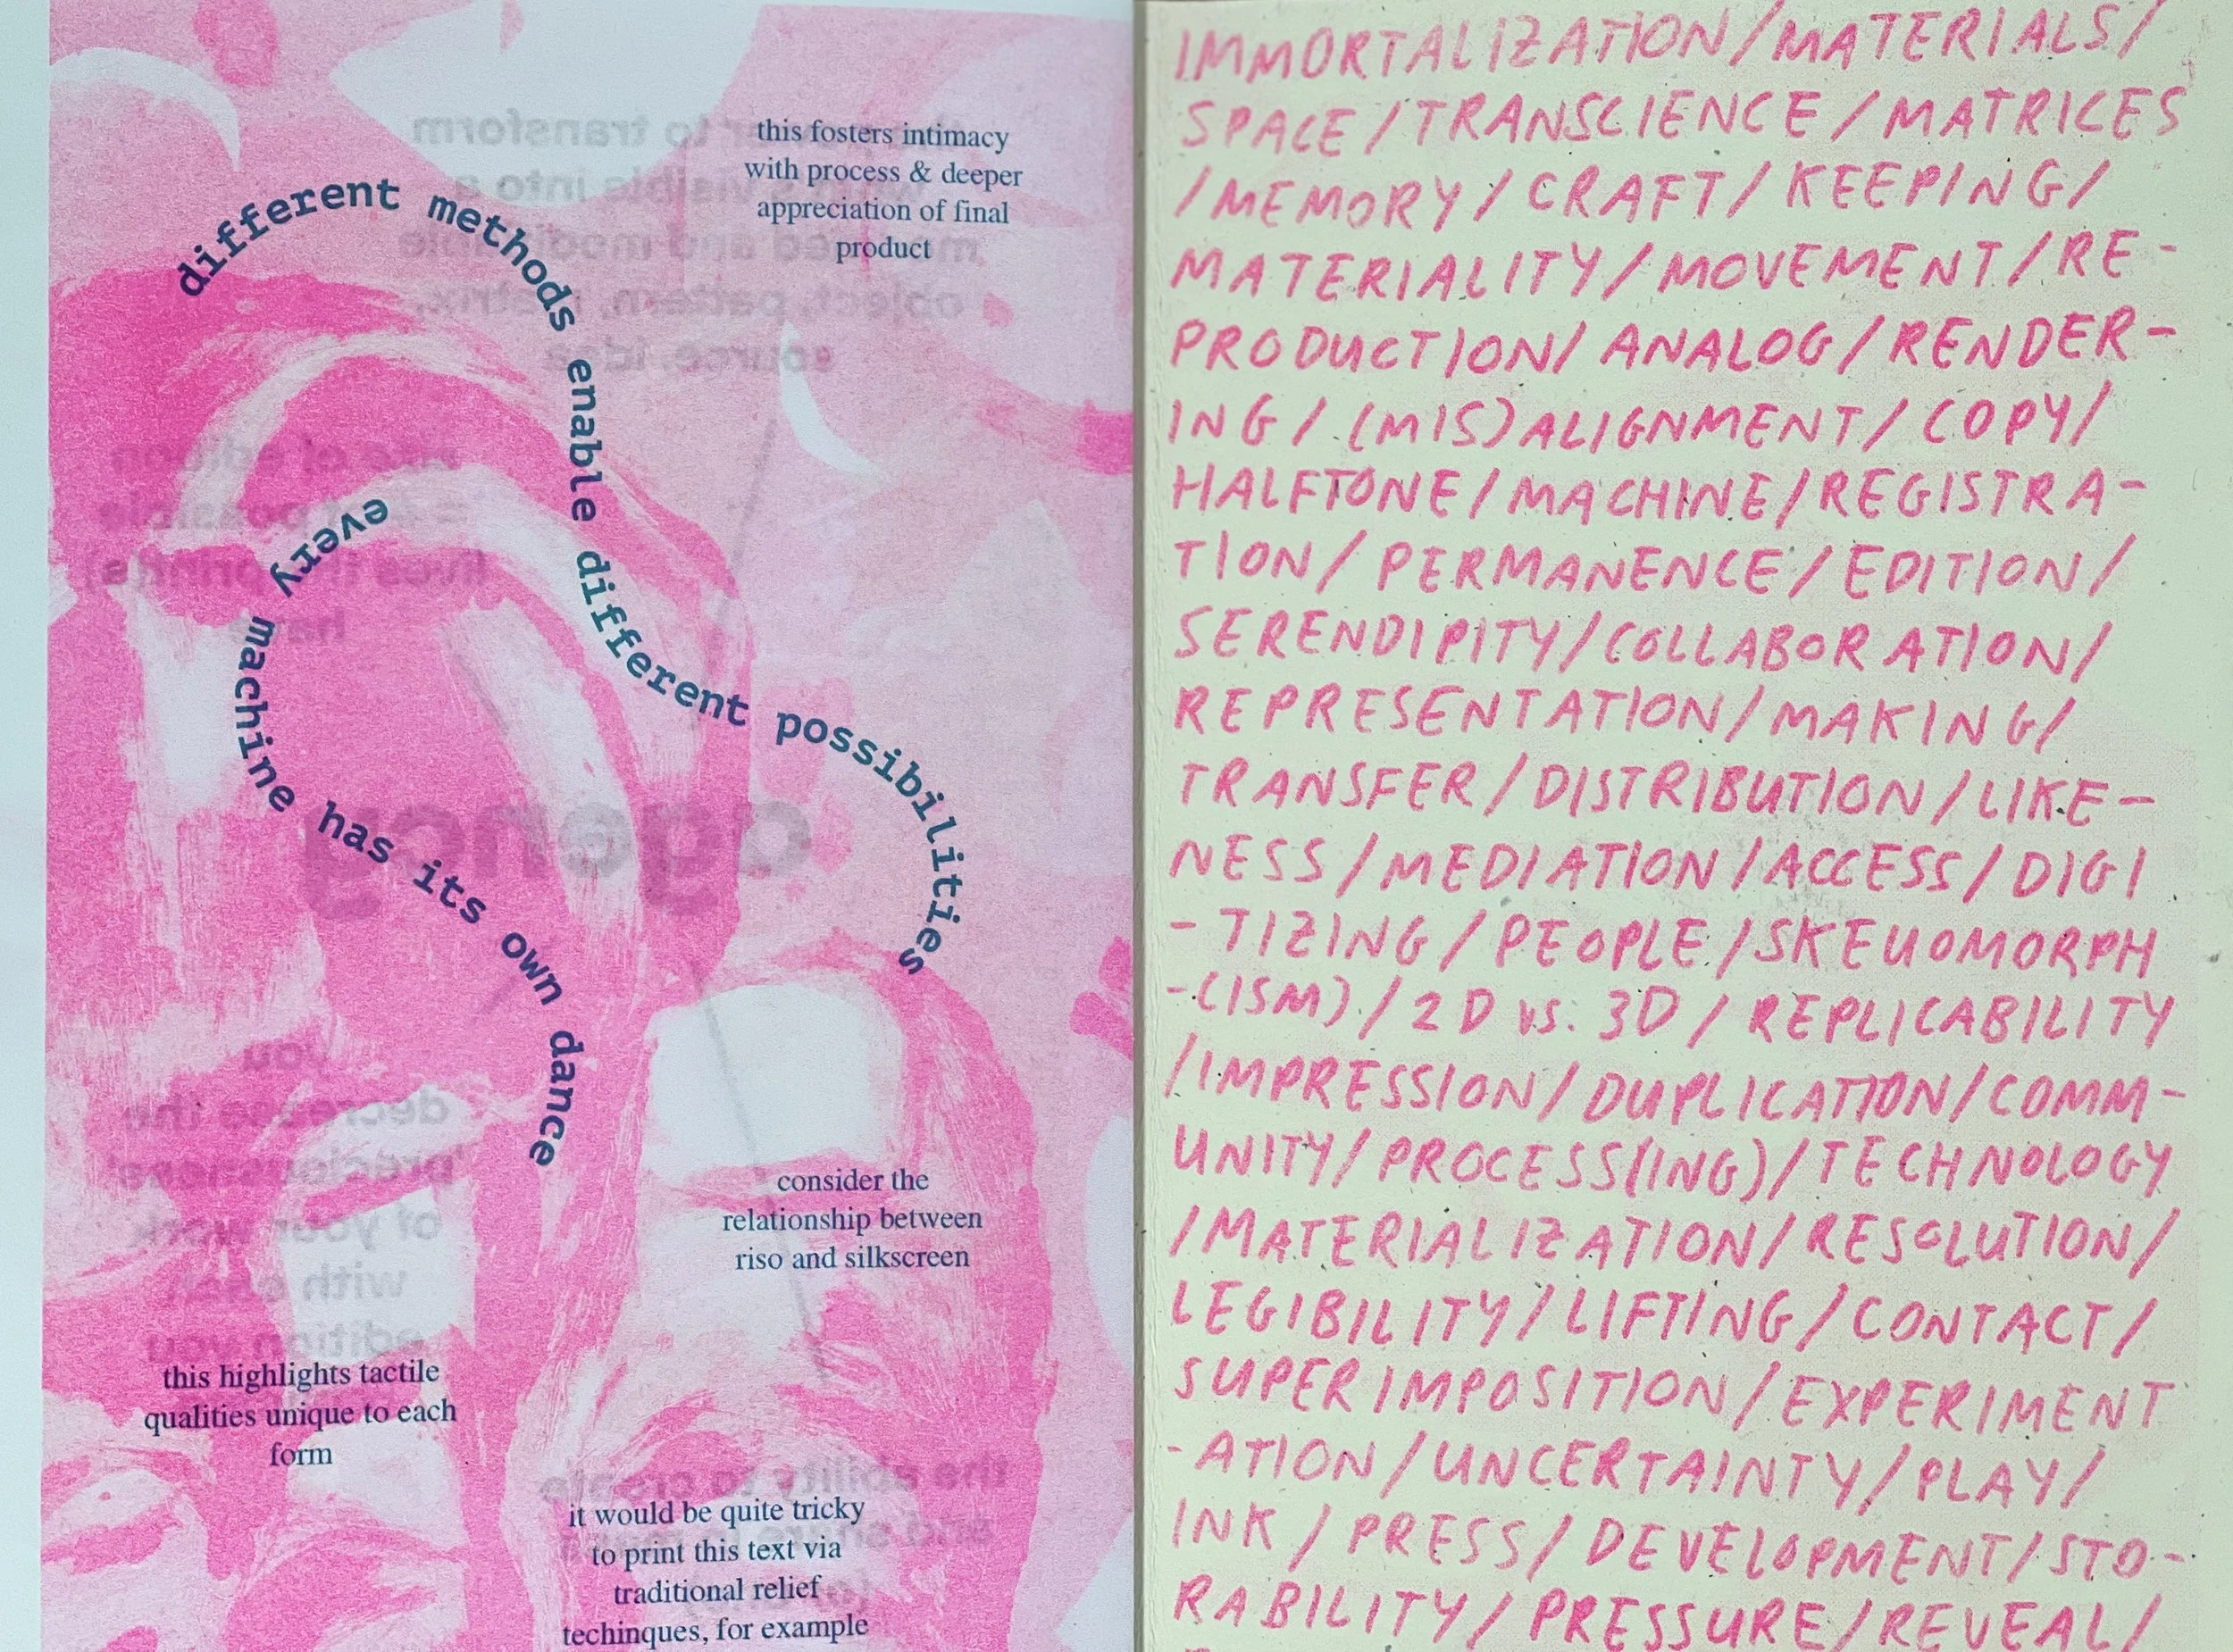 this fosters intimacy
with process & deeper
appreciation of final
product
different methods enable different possibilities
every machine has its own dance
consider the
relationship between
riso and silkscreen
this highlights tactile
qualities unique to each
form
it would be quite tricky
to print this text via
traditional relief
techinques, for example
agency
IMMORTALIZATION/MATERIALS/
SPACE/TRANSCIENCE/MATRICES
/MEMORY/CRAFT/KEEPING/
MATERIALITY/MOVEMENT/RE-
PRODUCTION/ANALOG/RENDER-
ING/(MIS)ALIGNMENT/COPY/
HALFTONE/MACHINE/REGISTRA-
TION/PERMANENCE/EDITION/
SERENDIPITY/COLLABORATION/
REPRESENTATION/MAKING/
TRANSFER/DISTRIBUTION/LIKE-
NESS/MEDIATION/ACCESS/DIGI
-TIZING/PEOPLE/SKEUOMORPH
-(ISM)/2D vs. 3D/REPLICABILITY
/IMPRESSION/DUPLICATION/COMM-
UNITY/PROCESS(ING)/TECHNOLOGY
/MATERIALIZATION/RESOLUTION/
LEGIBILITY/LIFTING/CONTACT/
SUPERIMPOSITION/EXPERIMENT
-ATION/UNCERTAINTY/PLAY/
INK/PRESS/DEVELOPMENT/STO-
RABILITY/PRESSURE/REVEAL/